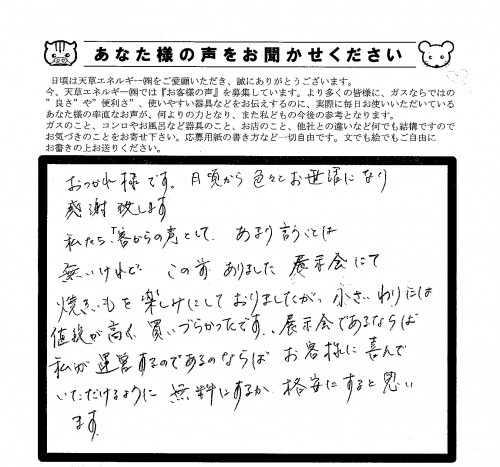 あなた様の声をお聞かせください
日頃は天草エネルギー㈱をご愛顧いただき、誠にありがとうございます。
今、天草エネルギー㈱では『お客様の声』を募集しています。より多くの皆様に、ガスならではの
”良さ”や”便利さ”、使いやすい器具などをお伝えするのに、実際に毎日お使いいただいている
あなた様の率直なお声が、何よりの力となり、また私どもの今後の参考となります。
ガスのこと、コンロやお風呂など器具のこと、お店のこと、他社との違いなど何でも結構ですので
お気づきのことをお寄せ下さい。応募用紙の書き方など一切自由です。文でも絵でもご自由に
お書きの上お送りください。
おつかれ様です。月頃から色々とお世話になり
感謝致します
私たち「客からの声」として、あまり言うことは
無いけれど、この前ありました展示会にて
焼きいもを楽しみにしておりましたが、小さいわりには
値段が高く、買いづらかったです、展示会であるならば
私が運営するのであるのならばお客様に喜んで
いただけるように無料にするか、格安にすると思い
ます